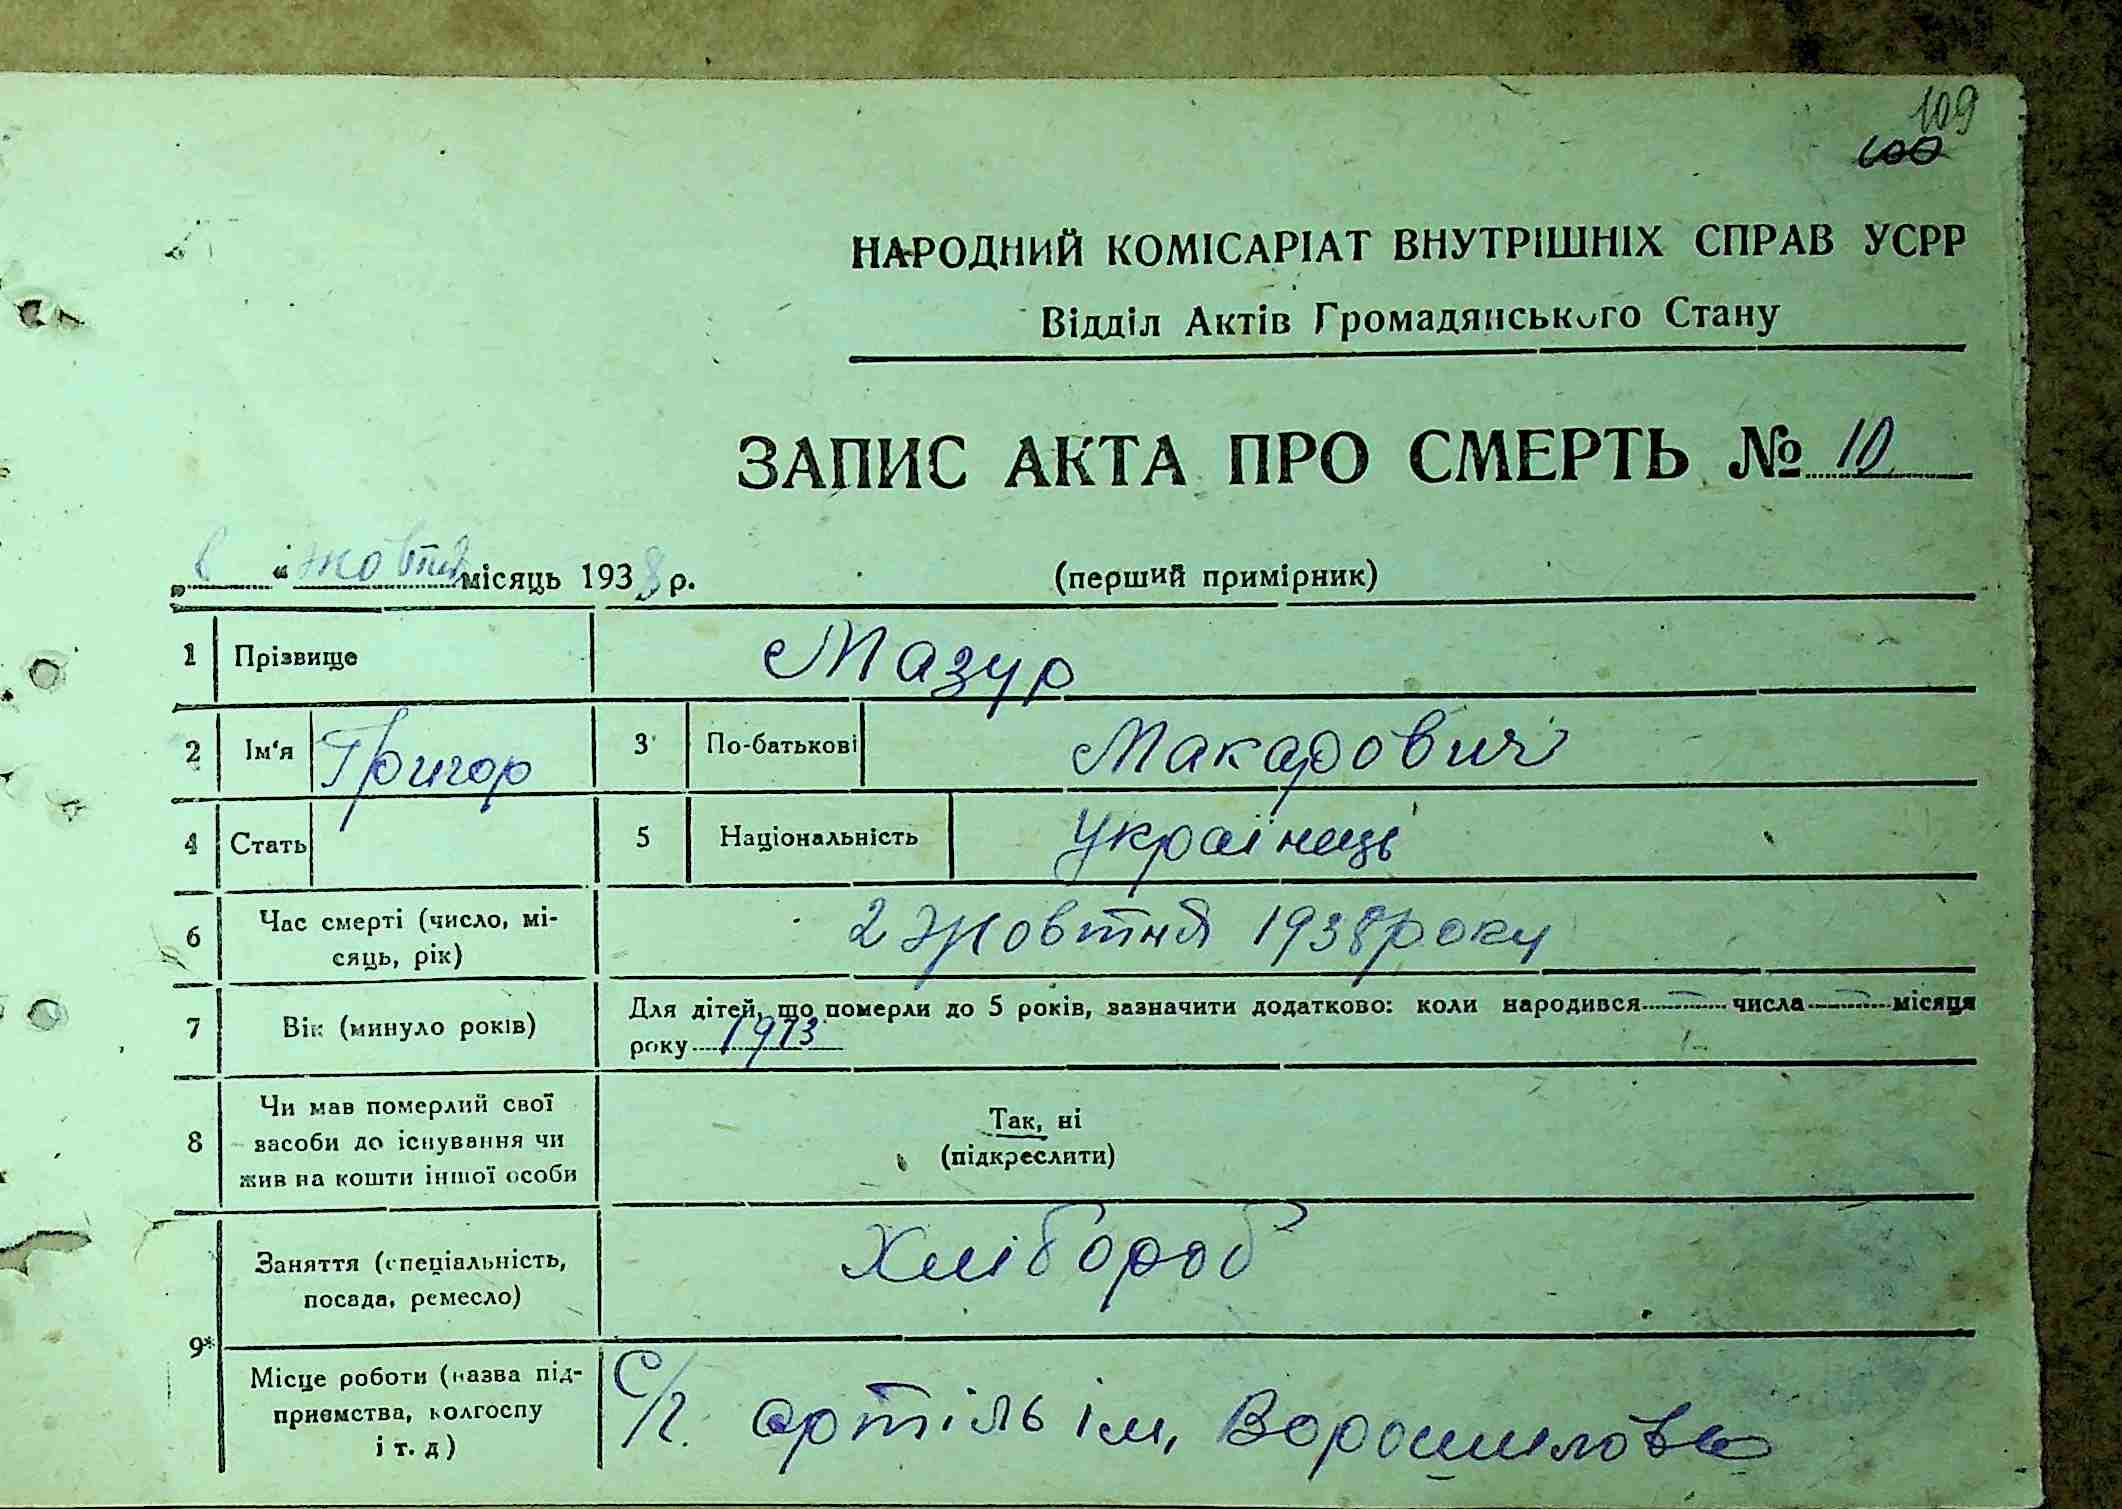 109
600
НАРОДНИЙ КОМІСАРІАТ ВНУТРІШНІХ СПРАВ УСРР
Відділ Актів Громадянського Стану
ЗАПИС АКТА ПРО СМЕРТЬ № 10
„ 8 “ жовтня місяць 1938 р. (перший примірник)
1 Прізвище Мазур
2 Ім'я Григор 3 По-батькові Макарович
4 Стать 5 Національність Українець
6 Час смерті (число, мі-
сяць, рік) 2 жовтня 1938 року
7 Вік (минуло років) Для дітей, що померли до 5 років, зазначити додатково: коли народився — числа — місяця
року 1913
8 Чи мав померлий свої
засоби до існування чи
жив на кошти іншої особи
Так, ні
(підкреслити)
9* Заняття (спеціальність,
посада, ремесло) Хлібороб
Місце роботи (назва під-
приємства, колгоспу
і т. д) С/г. артіль ім. Ворошилова